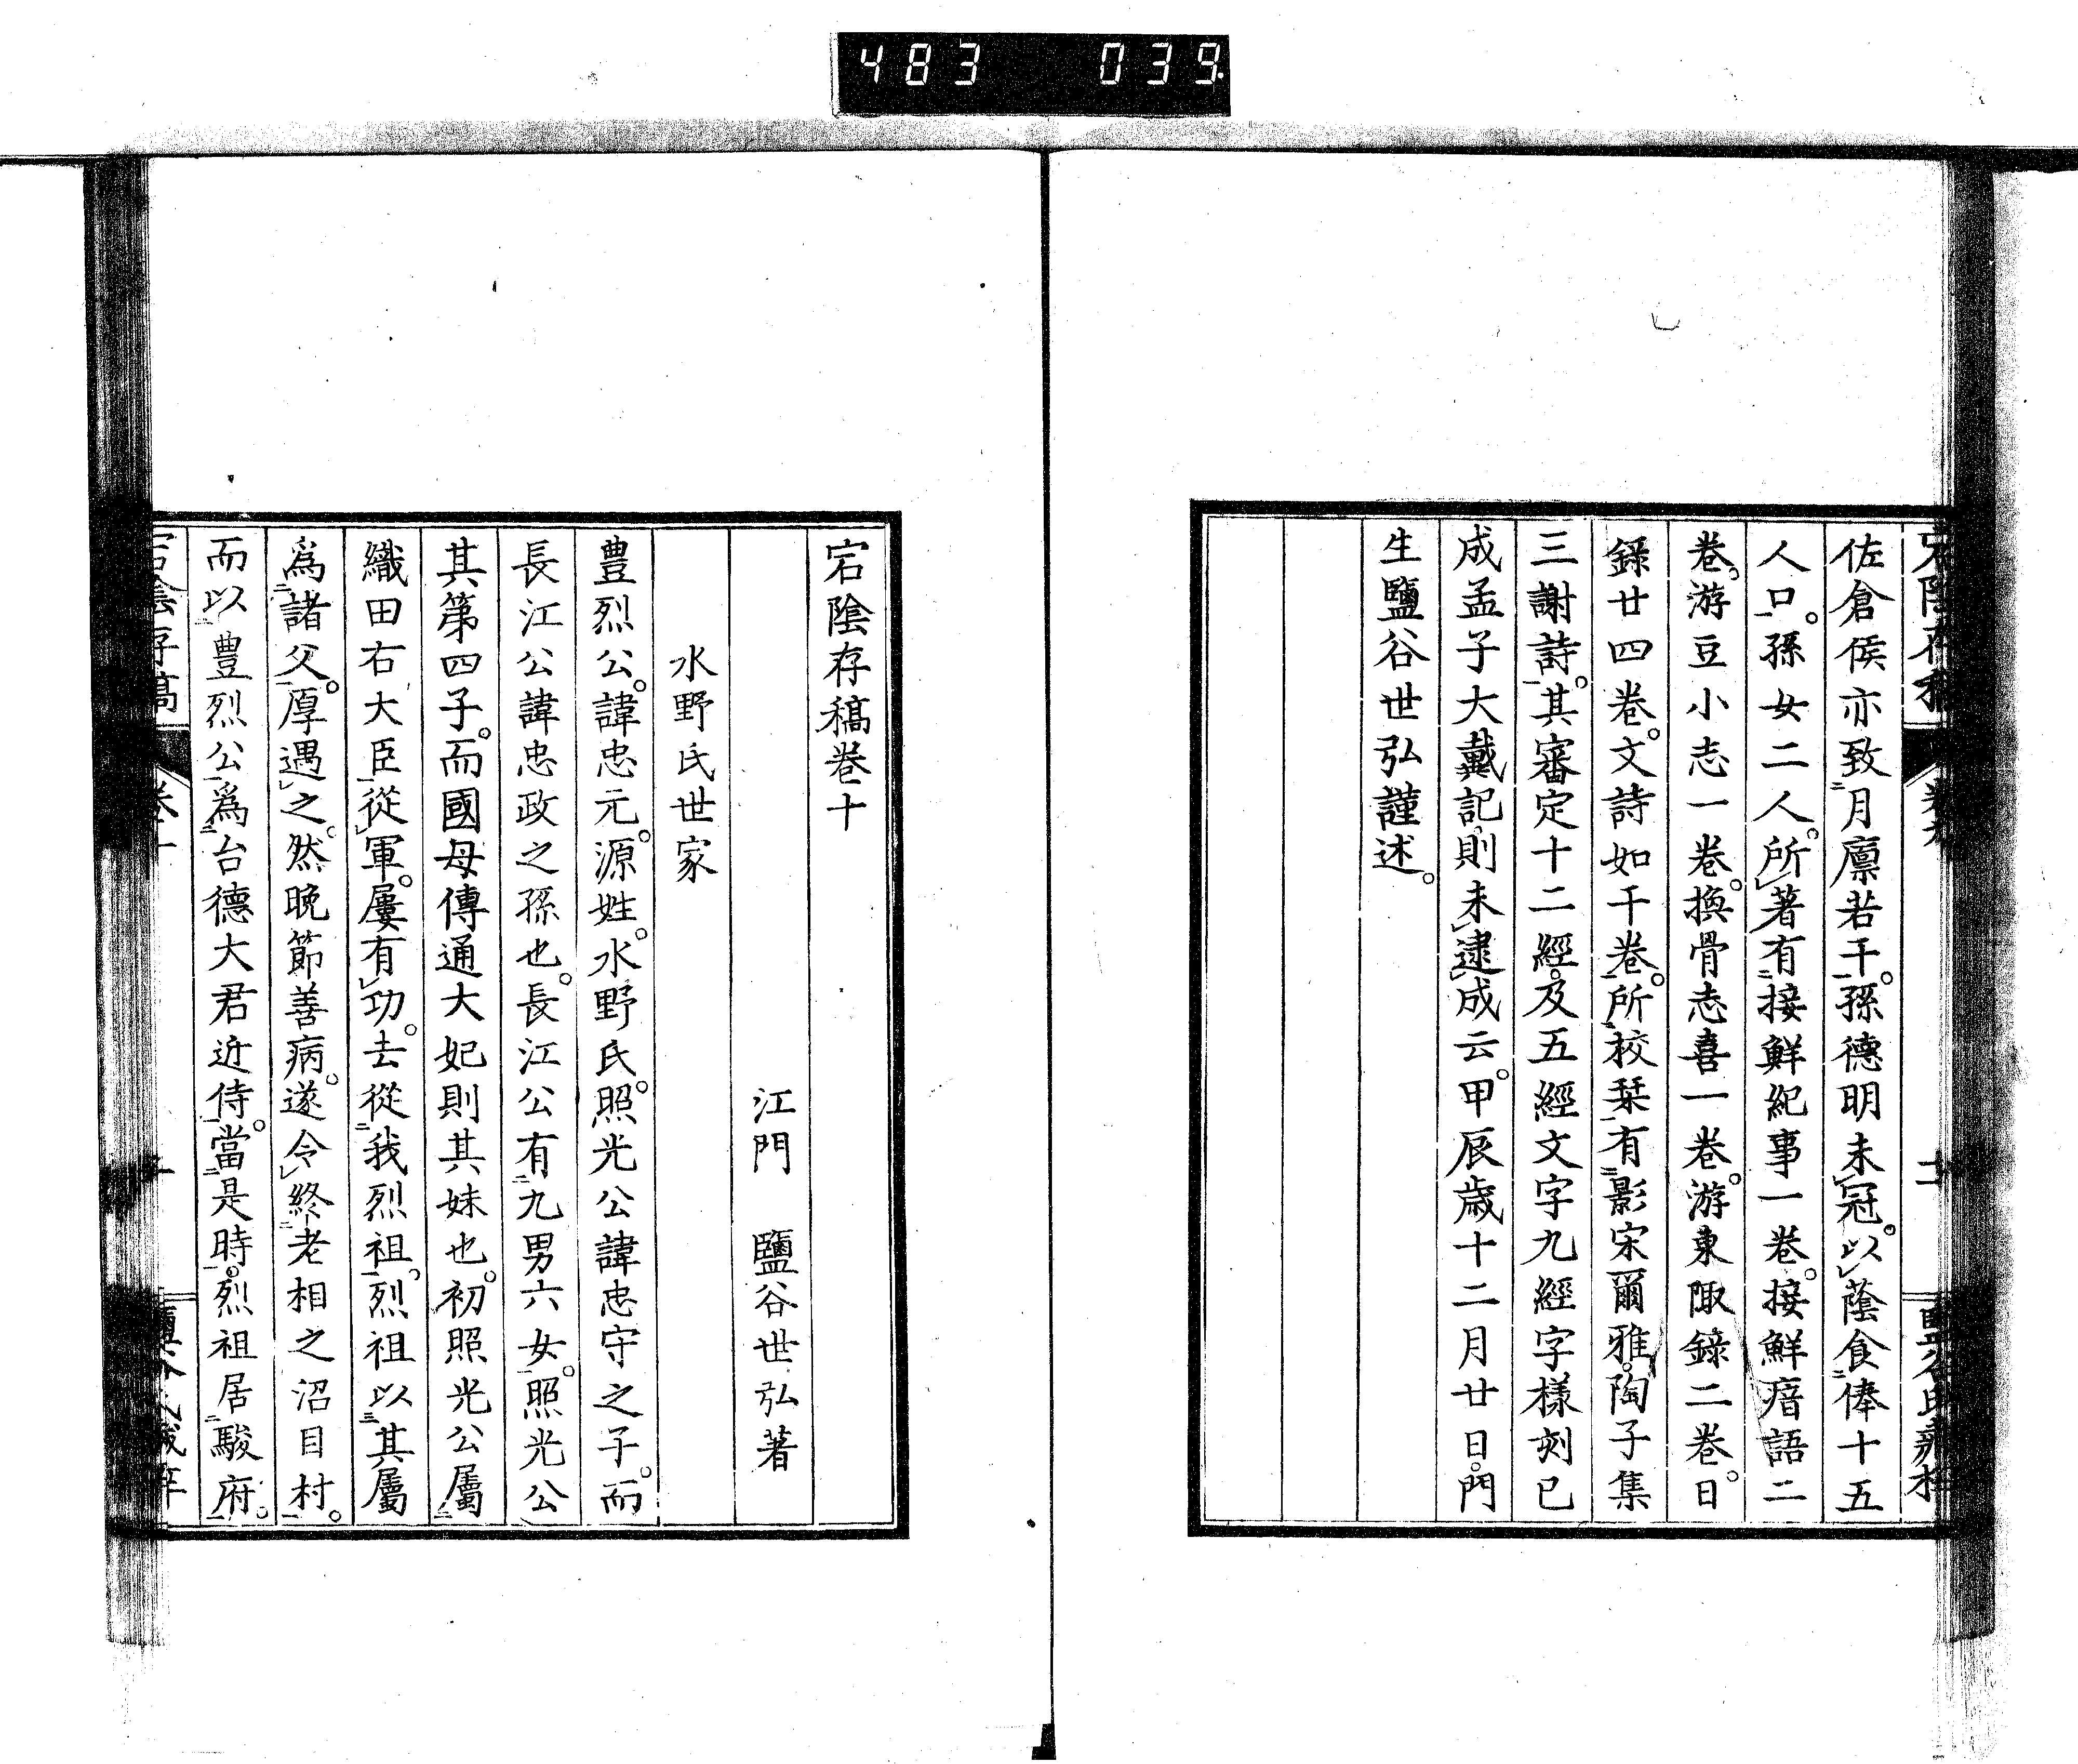 483 039
佐倉侯亦致月廪若干。孫德明未冠。以蔭食俸十五
人口。孫女二人。所著有接鮮紀事一卷。接鮮瘖語二
卷。游豆小志一卷。換骨志喜一卷。游東陬錄二卷。日
錄廿四卷。文詩如干卷。所校栞有影宋爾雅。陶子集
三謝詩。其審定十二經。及五經文字九經字樣刻已
成。孟子大戴記。則未逮成云。甲辰歲十二月廿日。門
生鹽谷世弘謹述。
宕陰存稿卷十
江門 鹽谷世弘著
水野氏世家
豊烈公。諱忠元。源姓。水野氏。照光公諱忠守之子。而
長江公諱忠政之孫也。長江公有九男六女。照光公
其第四子。而國母傳通大妃則其妹也。初照光公屬
織田右大臣從軍。屢有功。去從我烈祖。烈祖以其屬
爲諸父。厚遇之。然晩節善病。遂令終老相之沼目村。
而以豊烈公爲台德大君近侍。當是時。烈祖居駿府。